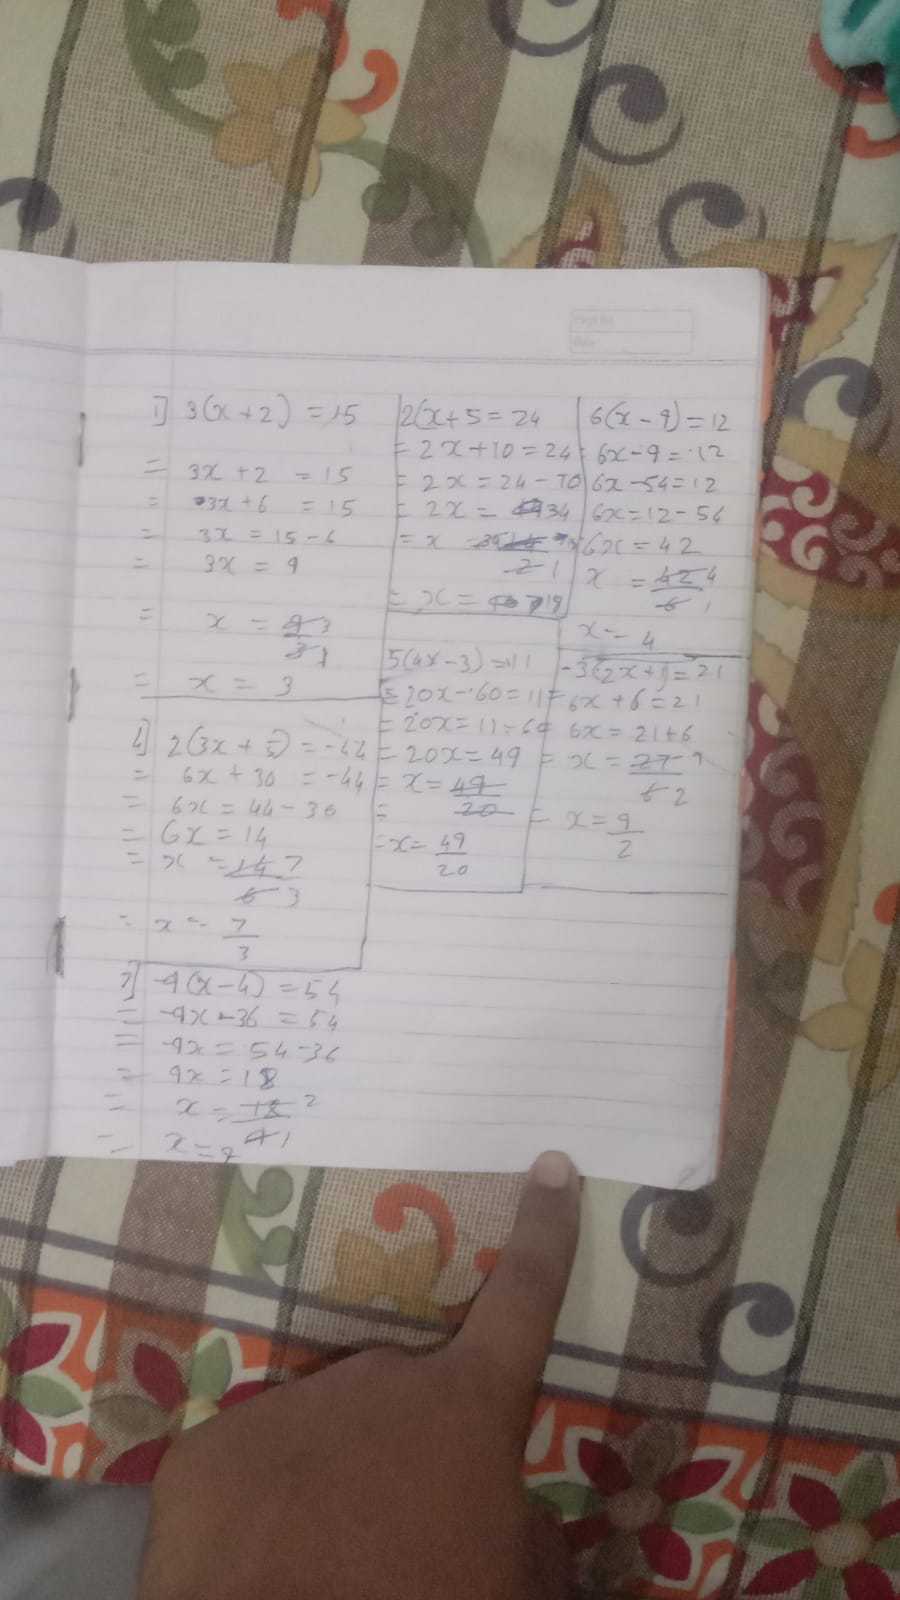 1] 3(x + 2) = 15
= 3x + 2 = 15
= 3x + 6 = 15
= 3x = 15 - 6
= 3x = 9
= x = 9 3
3 1
= x = 3
2(x + 5 = 24
= 2x + 10 = 24
= 2x = 24 - 10
= 2x = 34
= x
2 1
= x =
6(x - 9) = 12
6x - 9 = 12
6x - 54 = 12
6x = 12 - 54
6x = 42
x = 42 4
6 1
x = 4
4] 2(3x + 5) = -44
= 6x + 30 = -44
= 6x = 44 - 30
= 6x = 14
= x = 14 7
6 3
= x = 7
3
5(4x - 3) = 11
= 20x - 60 = 11
= 20x = 11 - 60
= 20x = 49
= x = 49
= 20
= x = 49
20
-3(2x + 1) = 21
= 6x + 6 = 21
= 6x = 21 + 6
= x = 27 9
6 2
= x = 9
2
7] -9(x - 4) = 54
= -9x - 36 = 54
= -9x = 54 - 36
= 9x = 18
= x = 18 2
9 1
= x = 2